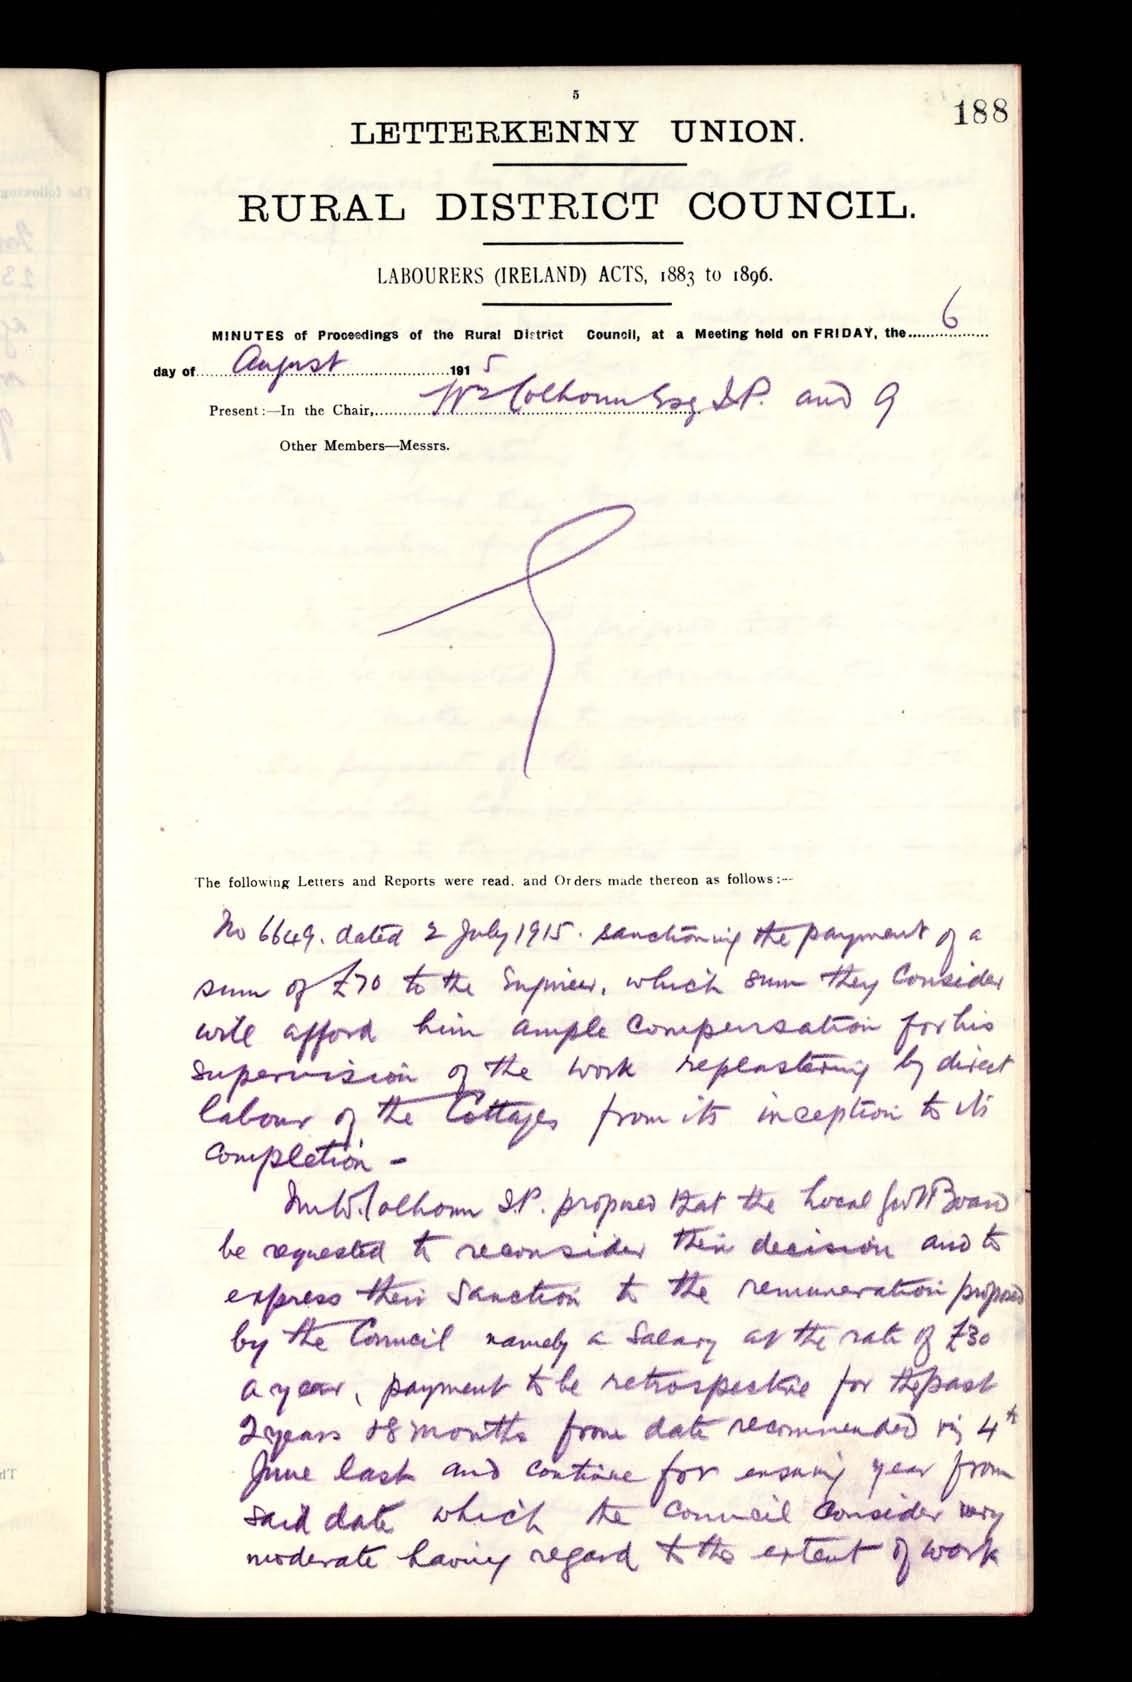 5
188
LETTERKENNY UNION.
RURAL DISTRICT COUNCIL.
LABOURERS (IRELAND) ACTS, 1883 to 1896.
MINUTES of Proceedings of the Rural District Council, at a Meeting held on FRIDAY, the 6
day of August 1915
Present:—In the Chair, Wm Colhoun Esq J.P. and 9
Other Members—Messrs.
The following Letters and Reports were read, and Orders made thereon as follows:—
No 6649. dated 2 July 1915. sanctioning the payment of a
sum of £70 to the Engineer, which sum they Consider
will afford him ample Compensation for his
supervision of the work replastering by direct
labour of the Cottages from its inception to its
Completion -
Mr W. Colhoun J.P. proposed that the Local Govt Board
be requested to reconsider their decision and to
express their Sanction to the remuneration proposed
by the Council namely a Salary at the rate of £30
a year, payment to be retrospective for the past
2 years & 8 months from date recommended viz 4th
June last and continue for ensuing year from
said date which the Council Consider very
moderate having regard to the extent of work